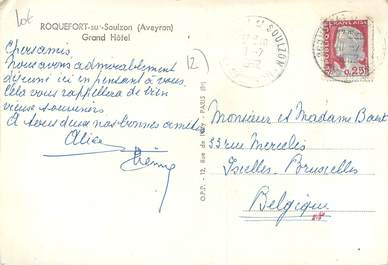 Lot
ROQUEFORT-sur-Soulzon (Aveyron)
Grand Hôtel
12
Chers amis
Nous avons admirablement
déjeuné ici en pensant à vous.
Cela vous rappellera de bien
vieux souvenirs
A vous deux nos bonnes amitiés
Alice
O.P.P. - 12, Rue de - PARIS
SOULZON
FRANÇAISE
0,25F
Monsieur et Madame
33 rue Mercelis
Ixelles-Bruxelles
Belgique